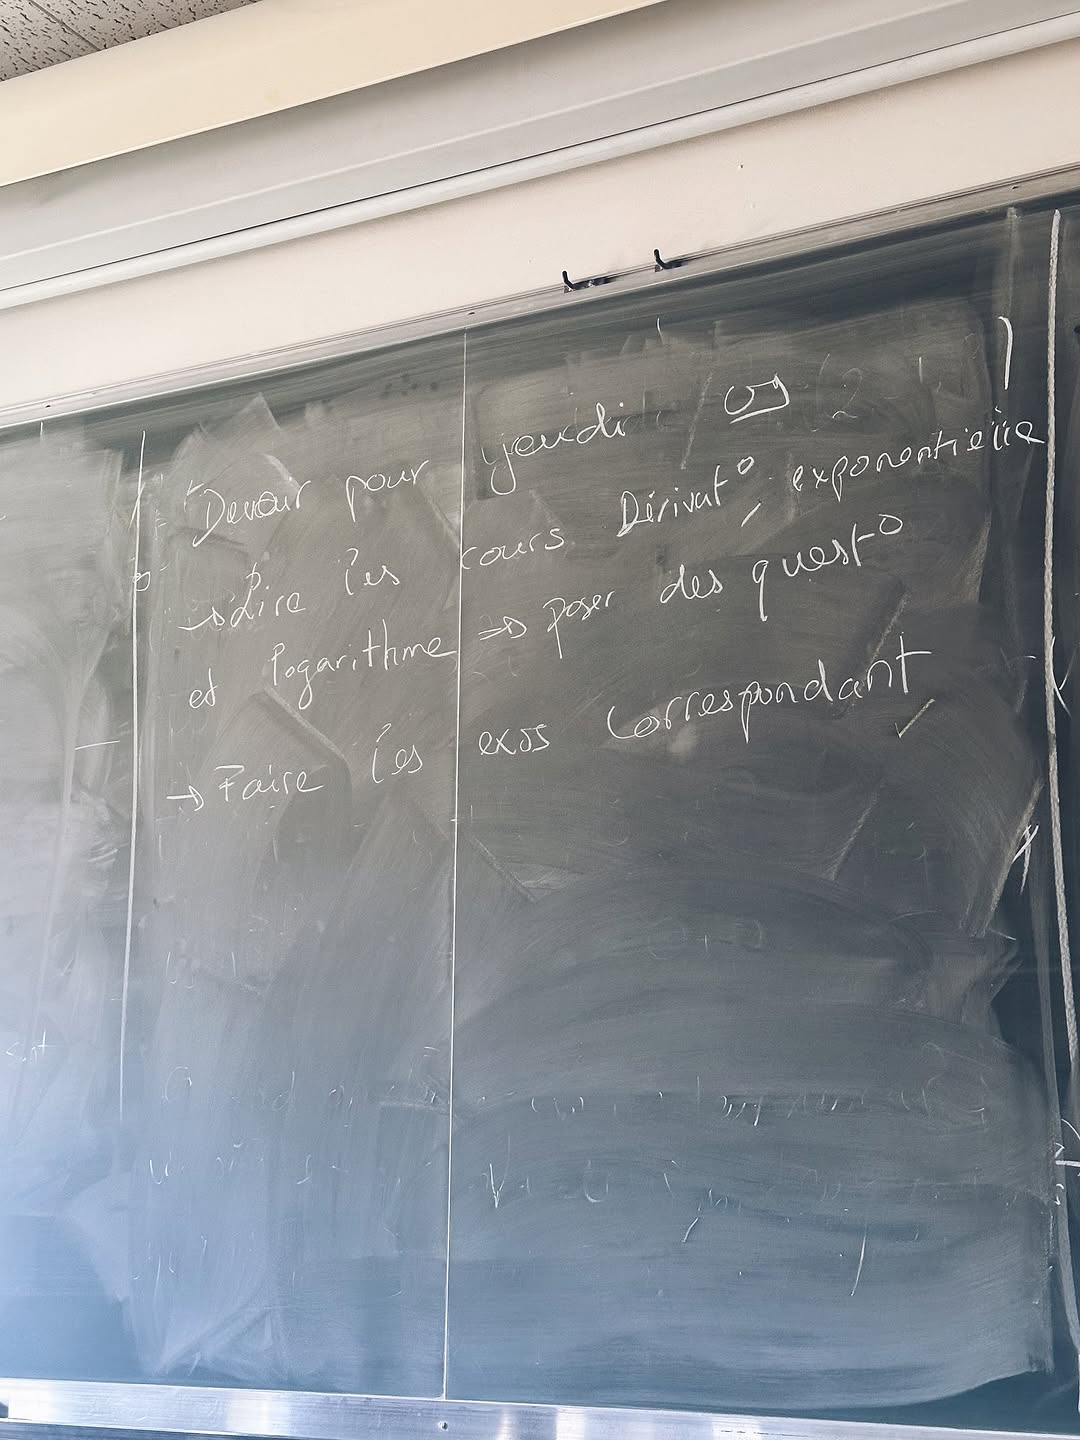 Devoir pour jeudi 09
→ Lire les cours Dérivat°, exponentielle
et logarithme => poser des quest°
→ Faire les exos correspondant